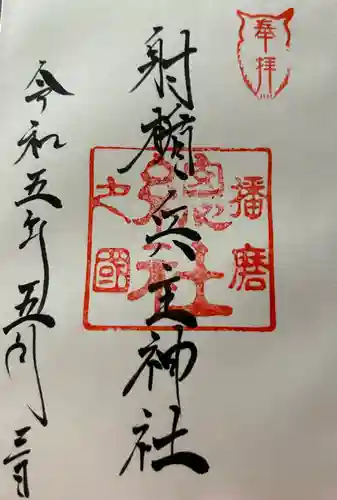 奉拝
射楯兵主神社
播磨
總社
之國
令和五年五月三日